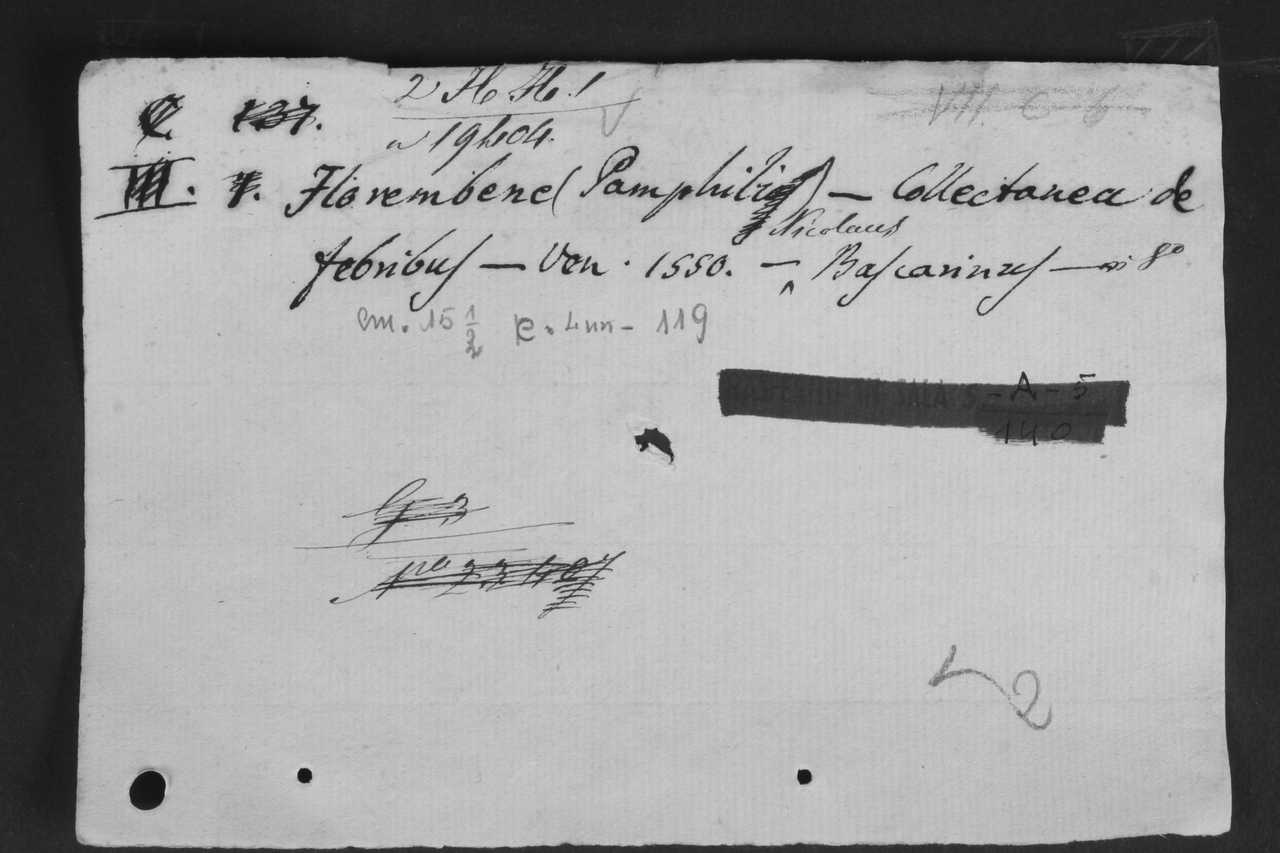 2 H. H. 1
a 19404.
C 137.
VII 6 6
III. 7. Florembene (Pamphilius) — Collectanea de
Nicolaus
febribus — Ven. 1550. — ^ Bascarinus — in 8°
cm. 15 1/2 c. 4nn - 119
SALA S - A - 5
140
2